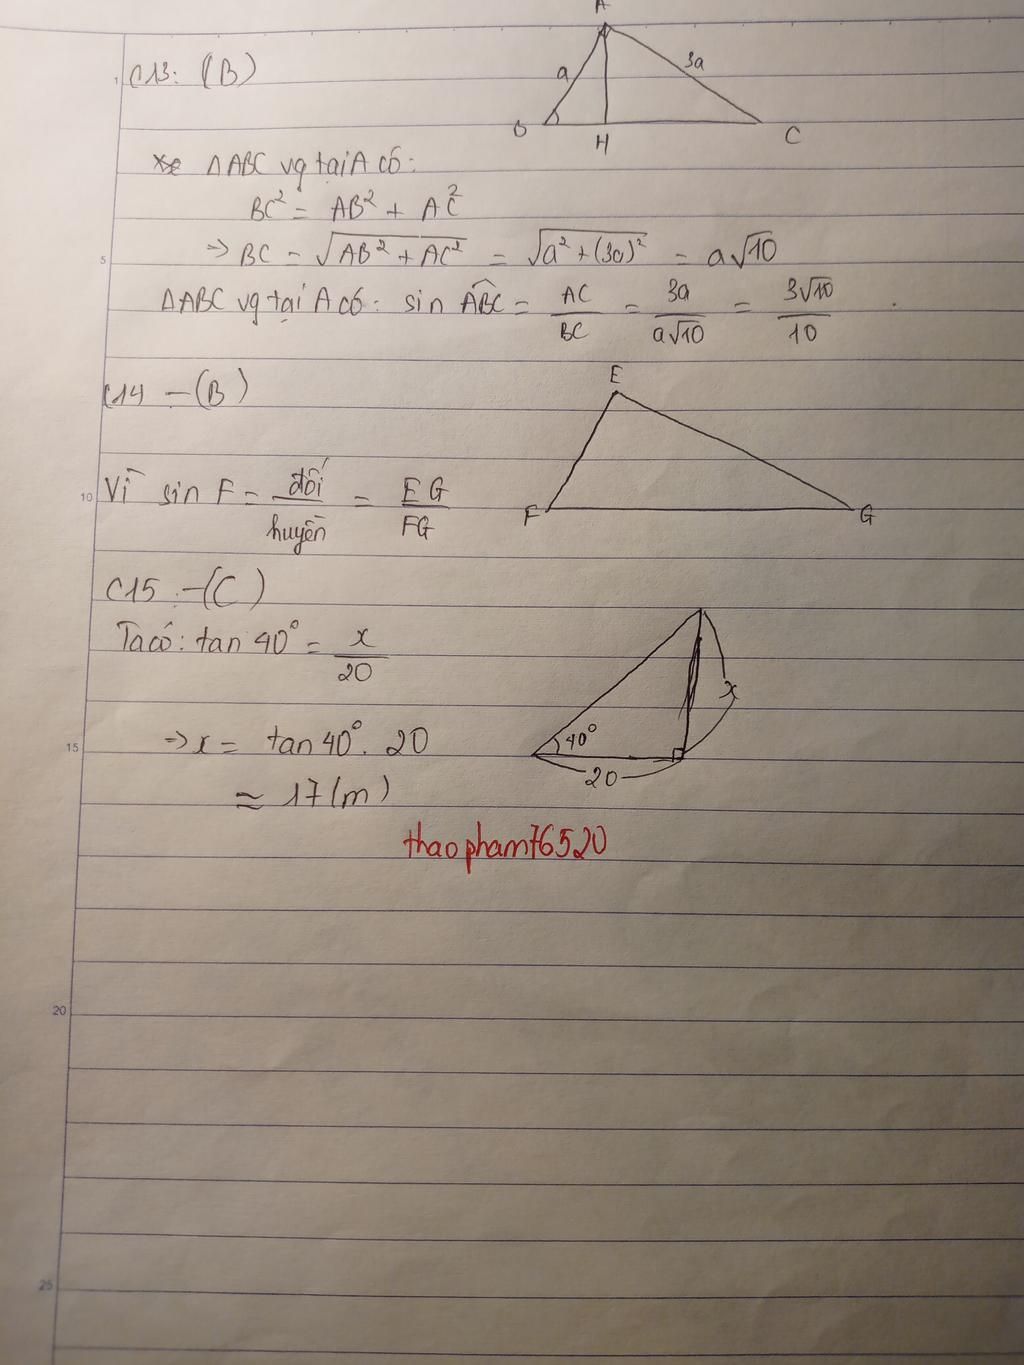 A
C13: (B)
a
3a
B
H
C
Xé ΔABC vg tại A có:
BC² = AB² + AC²
→ BC = √AB² + AC² = √a² + (3a)² = a√10
5
ΔABC vg tại A có: sin ABC = AC/BC = 3a/a√10 = 3√10/10
C14 – (B)
E
10
Vì sin F = đối/huyền = EG/FG
F
G
C15 – (C)
Ta có: tan 40° = x/20
x
15
→ x = tan 40° . 20
40°
20
≈ 17 (m)
thaopham76520
20
25